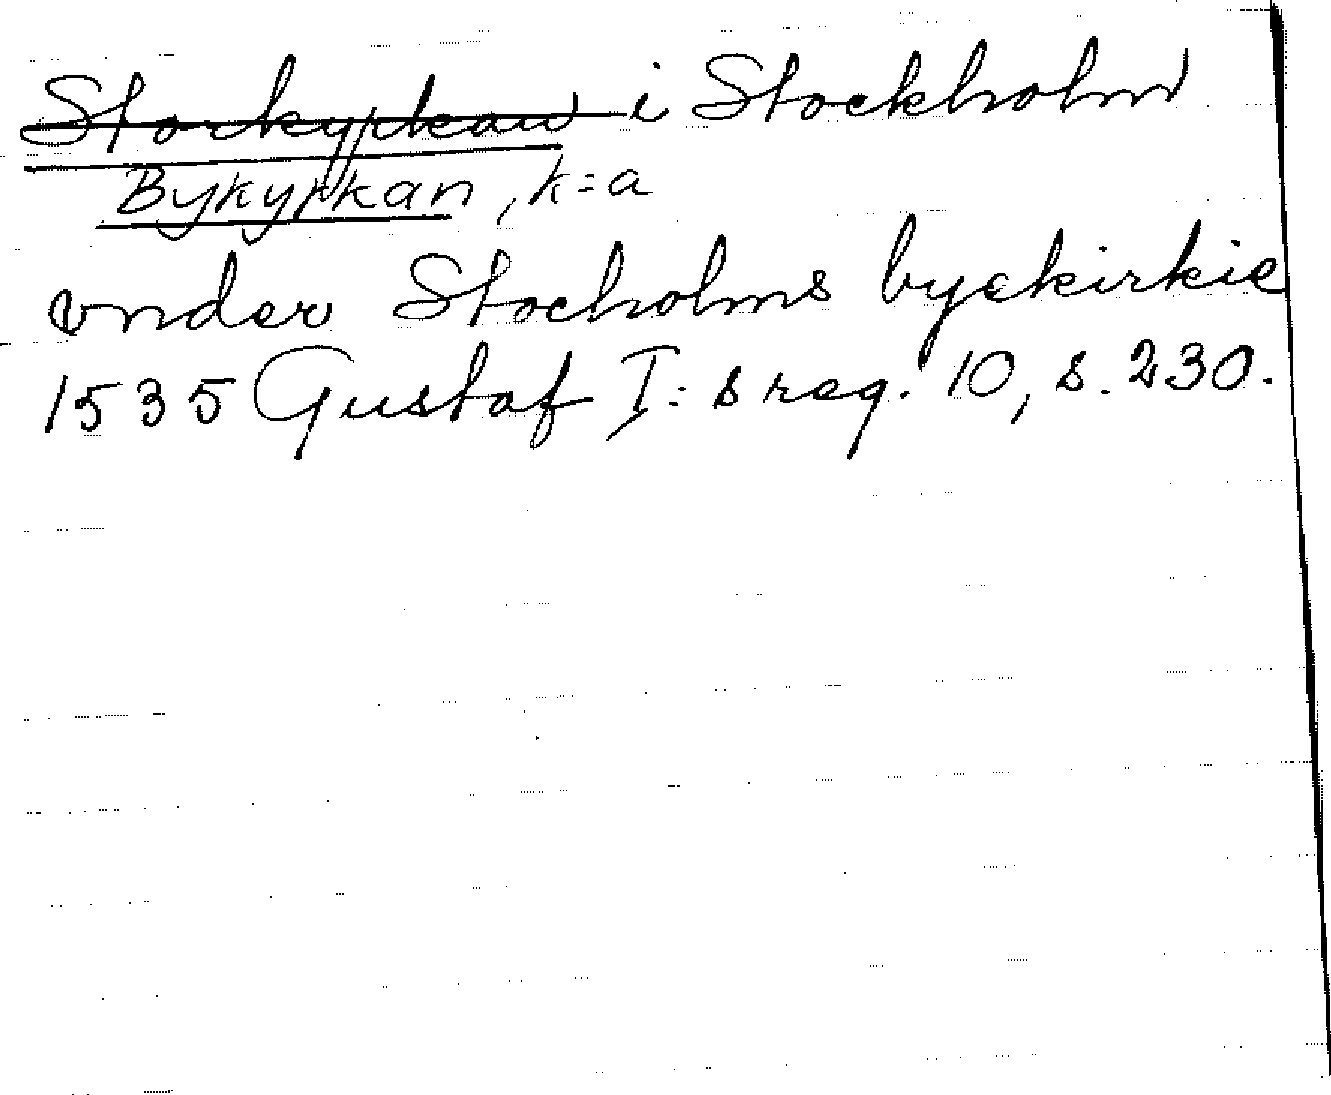 Storkyrkan i Stockholm
Bykyrkan, k=a
vnder Stocholms byekirkie
1535 Gustaf I:s reg. 10, s. 230.